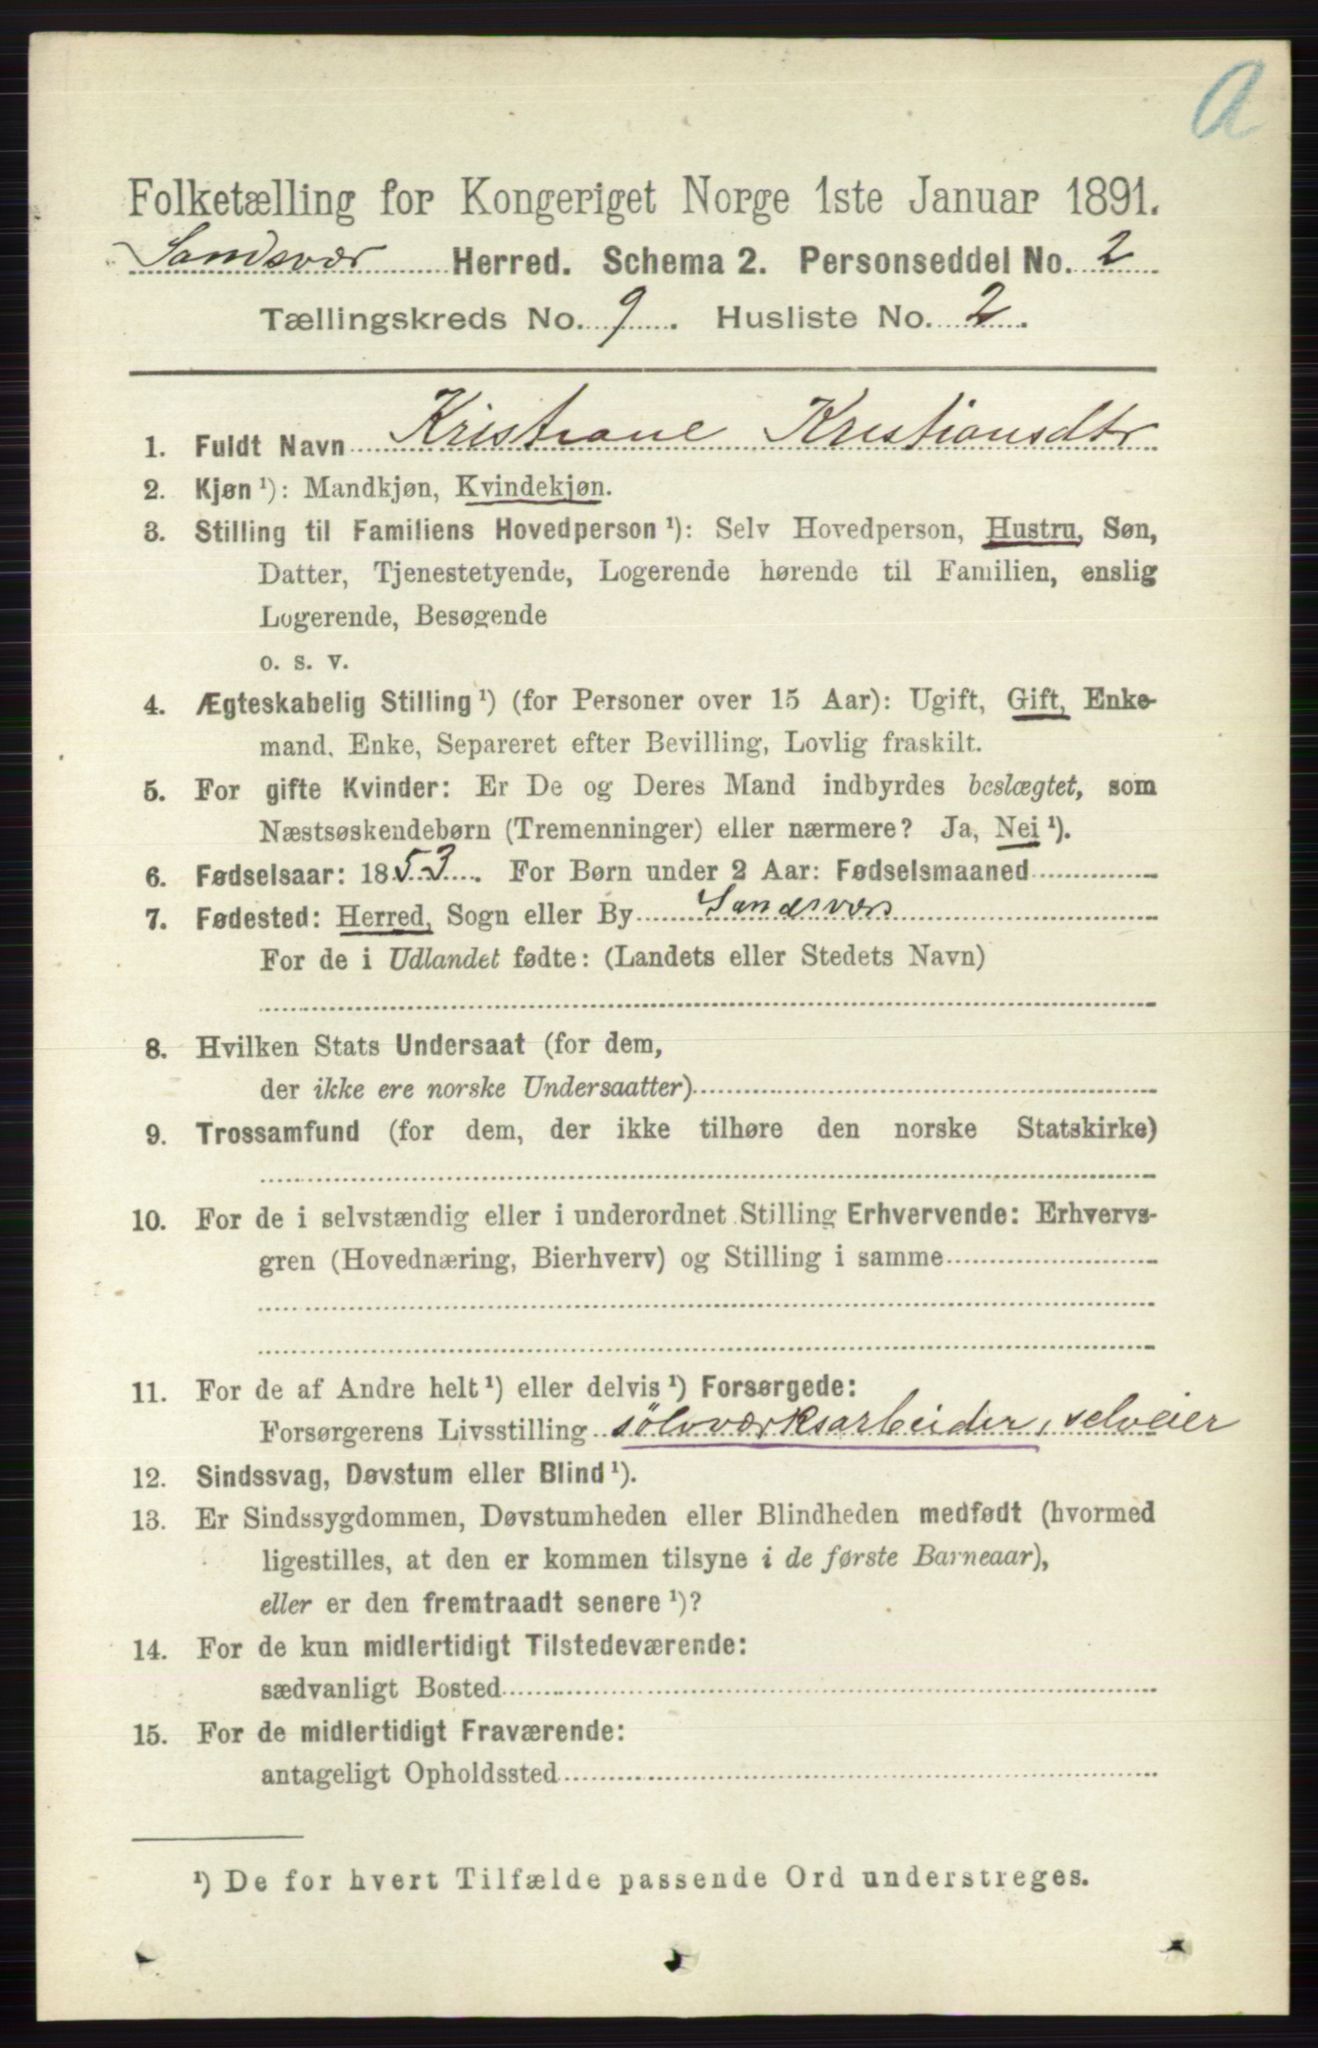 a
Folketælling for Kongeriget Norge 1ste Januar 1891.
Sandsvær Herred. Schema 2. Personseddel No. 2
Tællingskreds No. 9. Husliste No. 2.
1. Fuldt Navn Kristiane Kristiansdtr
2. Kjøn ¹): Mandkjøn, Kvindekjøn.
3. Stilling til Familiens Hovedperson ¹): Selv Hovedperson, Hustru, Søn,
Datter, Tjenestetyende, Logerende hørende til Familien, enslig
Logerende, Besøgende
o. s. v.
4. Ægteskabelig Stilling ¹) (for Personer over 15 Aar): Ugift, Gift, Enke-
mand, Enke, Separeret efter Bevilling, Lovlig fraskilt.
5. For gifte Kvinder: Er De og Deres Mand indbyrdes beslægtet, som
Næstsøskendebørn (Tremenninger) eller nærmere? Ja, Nei ¹).
6. Fødselsaar: 1853. For Børn under 2 Aar: Fødselsmaaned
7. Fødested: Herred, Sogn eller By Sandsvær
For de i Udlandet fødte: (Landets eller Stedets Navn)
8. Hvilken Stats Undersaat (for dem,
der ikke ere norske Undersaatter)
9. Trossamfund (for dem, der ikke tilhøre den norske Statskirke)
10. For de i selvstændig eller i underordnet Stilling Erhvervende: Erhvervs-
gren (Hovednæring, Bierhverv) og Stilling i samme
11. For de af Andre helt ¹) eller delvis ¹) Forsørgede:
Forsørgerens Livsstilling sölvværksarbeider, selveier
12. Sindssvag, Døvstum eller Blind ¹).
13. Er Sindssygdommen, Døvstumheden eller Blindheden medfødt (hvormed
ligestilles, at den er kommen tilsyne i de første Barneaar),
eller er den fremtraadt senere ¹)?
14. For de kun midlertidigt Tilstedeværende:
sædvanligt Bosted
15. For de midlertidigt Fraværende:
antageligt Opholdssted
¹) De for hvert Tilfælde passende Ord understreges.